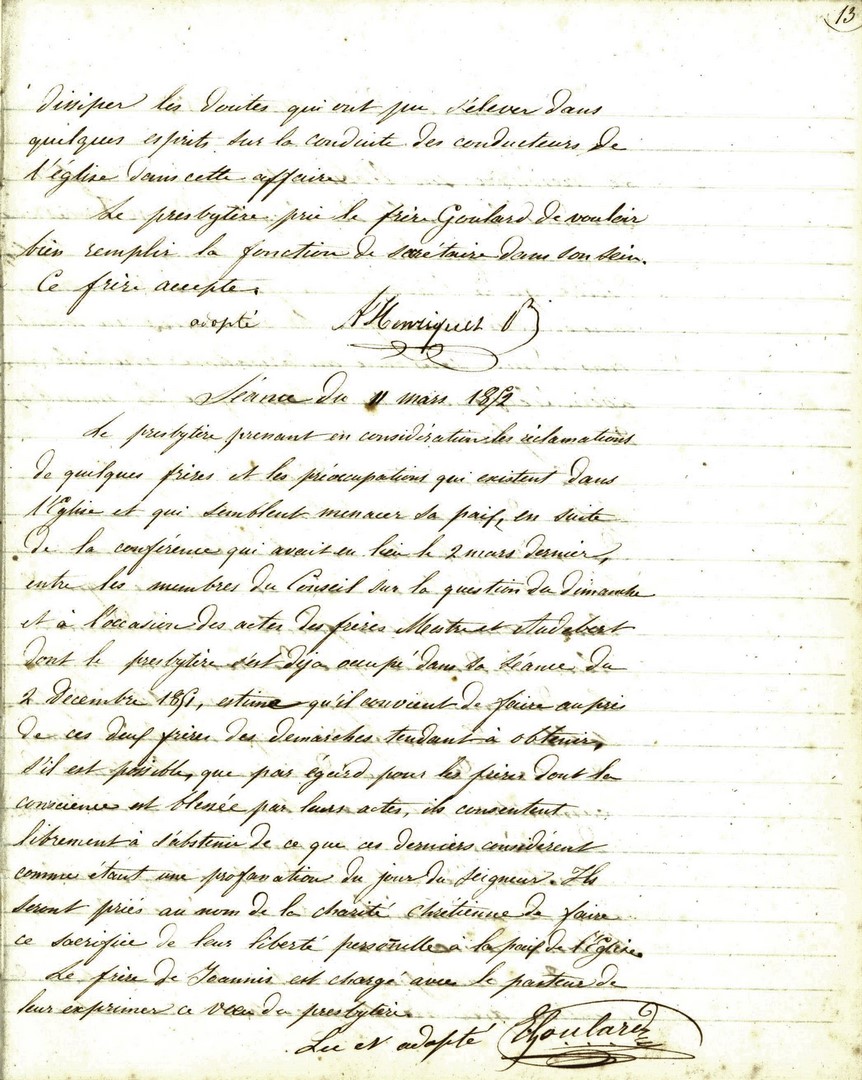 13
dissiper les doutes qui ont pu s'élever dans
quelques esprits sur la conduite des conducteurs de
l'église dans cette affaire.
Le presbytère prie le frère Goulard de vouloir
bien remplir la fonction de secrétaire dans son sein.
Ce frère accepte.
adopté
Séance du 11 mars 1852
Le presbytère prenant en considération les réclamations
de quelques frères et les préoccupations qui existent dans
l'Eglise et qui semblent menacer sa paix, en suite
de la conférence qui avait eu lieu le 2 mars dernier,
entre les membres du Conseil sur la question du dimanche
et à l'occasion des actes des frères Mestre et Audebert
dont le presbytère s'est déjà occupé dans sa séance du
2 Decembre 1851, estime qu'il convient de faire auprès
de ces deux frères des demarches tendant à obtenir,
s'il est possible, que par égard pour les frères dont la
conscience est blessée par leurs actes, ils consentent
librement à s'abstenir de ce que ces derniers considérent
comme étant une profanation du jour du Seigneur. Ils
seront priés au nom de la charité chrétienne de faire
ce sacrifice de leur liberté personelle à la paix de l'Eglise.
Le frère de Jeannis est chargé avec le pasteur de
leur exprimer ce vœu du presbytère.
Lu et adopté EGoulard